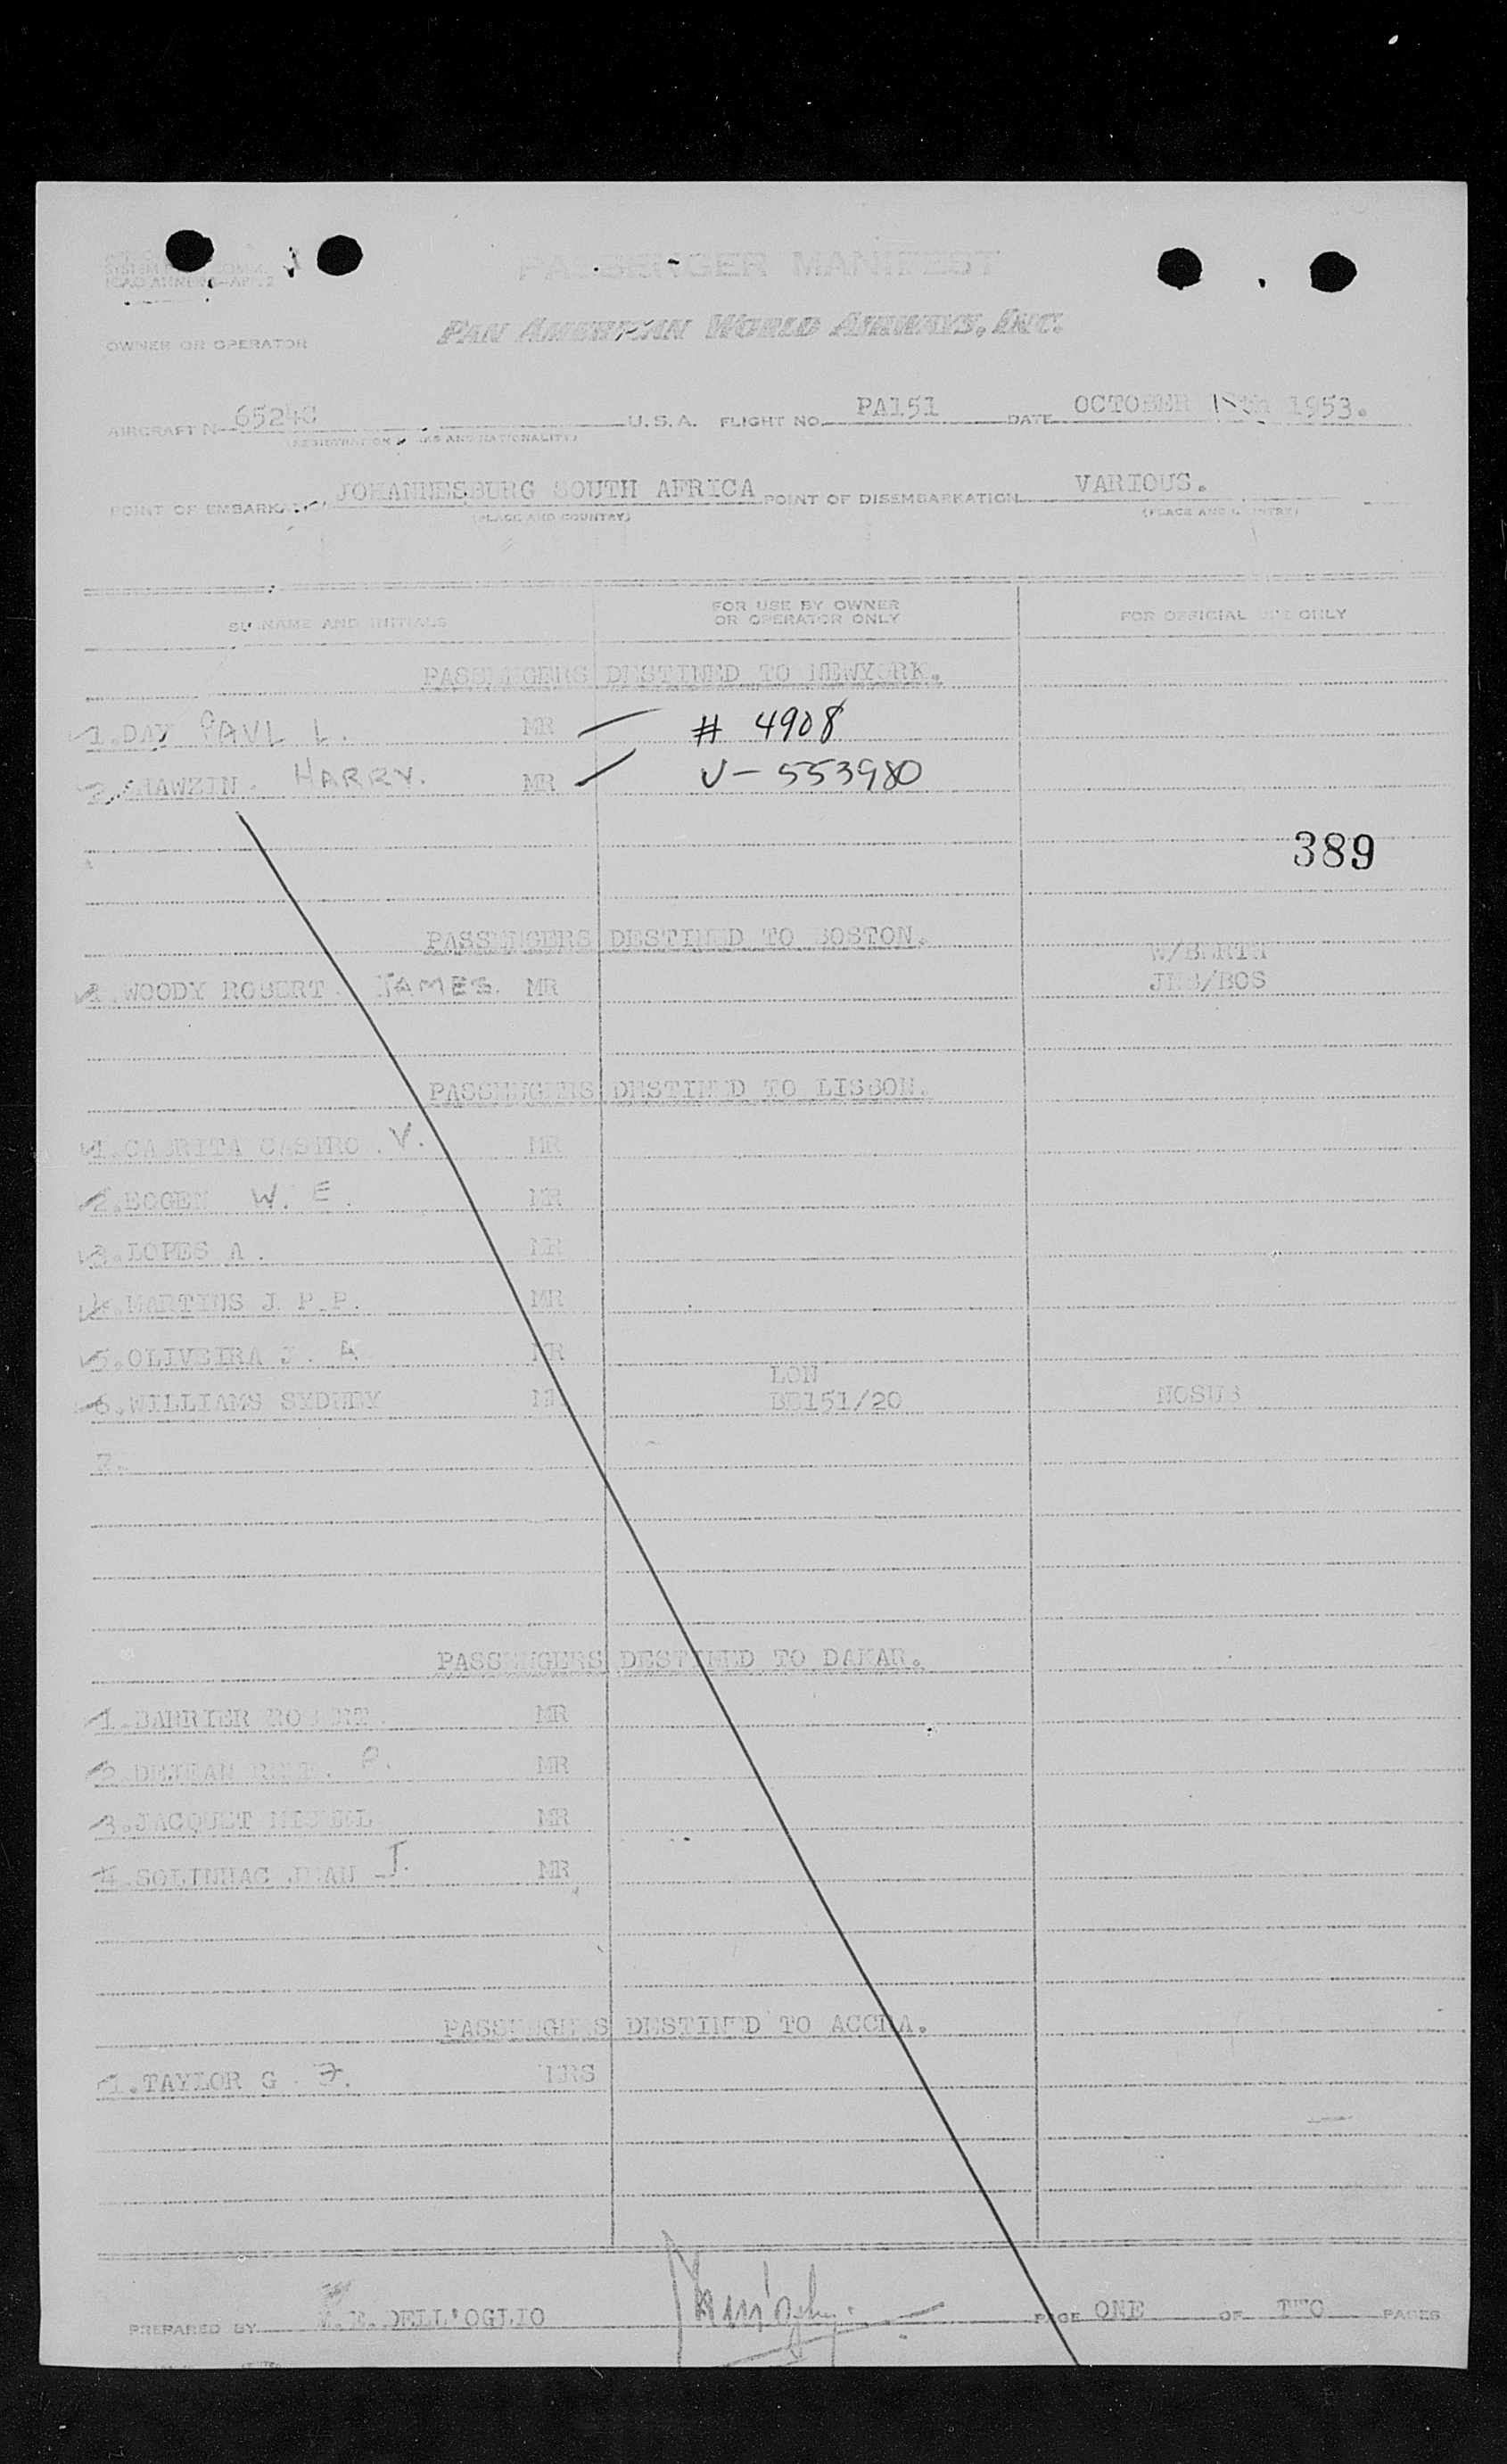 ICAO ANNEX 9—APP. 2
PASSENGER MANIFEST
OWNER OR OPERATOR PAN AMERICAN WORLD AIRWAYS, INC.
AIRCRAFT N 6524C U.S.A. FLIGHT NO. PA151 DATE OCTOBER 18th 1953.
(REGISTRATION MARKS AND NATIONALITY)
POINT OF EMBARKATION JOHANNESBURG SOUTH AFRICA POINT OF DISEMBARKATION VARIOUS.
(PLACE AND COUNTRY) (PLACE AND COUNTRY)
SURNAME AND INITIALS FOR USE BY OWNER OR OPERATOR ONLY FOR OFFICIAL USE ONLY
PASSENGERS DESTINED TO NEWYORK.
1.DAY PAUL L. MR # 4908
2. HAWZIN. HARRY. MR V-553980
389
PASSENGERS DESTINED TO BOSTON.
W/BERTH
1.WOODY ROBERT. JAMES. MR JNB/BOS
PASSENGERS DESTINED TO LISBON.
1.CABRITA CASTRO .V. MR
2.EGGEN W. E. MR
3.LOPES A. MR
4.MARTINS J. P.P. MR
5.OLIVEIRA J. A MR
LON
6.WILLIAMS SYDNEY MR BD151/20 NOSUB
7.
PASSENGERS DESTINED TO DAKAR.
1.BARRIER ROBERT. MR
2. P. MR
3.JACQUET MICHEL MR
4.SOLINHAC JEAN J. MR
PASSENGERS DESTINED TO ACCRA.
1.TAYLOR G. F. MRS
PREPARED BY E. DELL'OGLIO PAGE ONE OF TWO PAGES